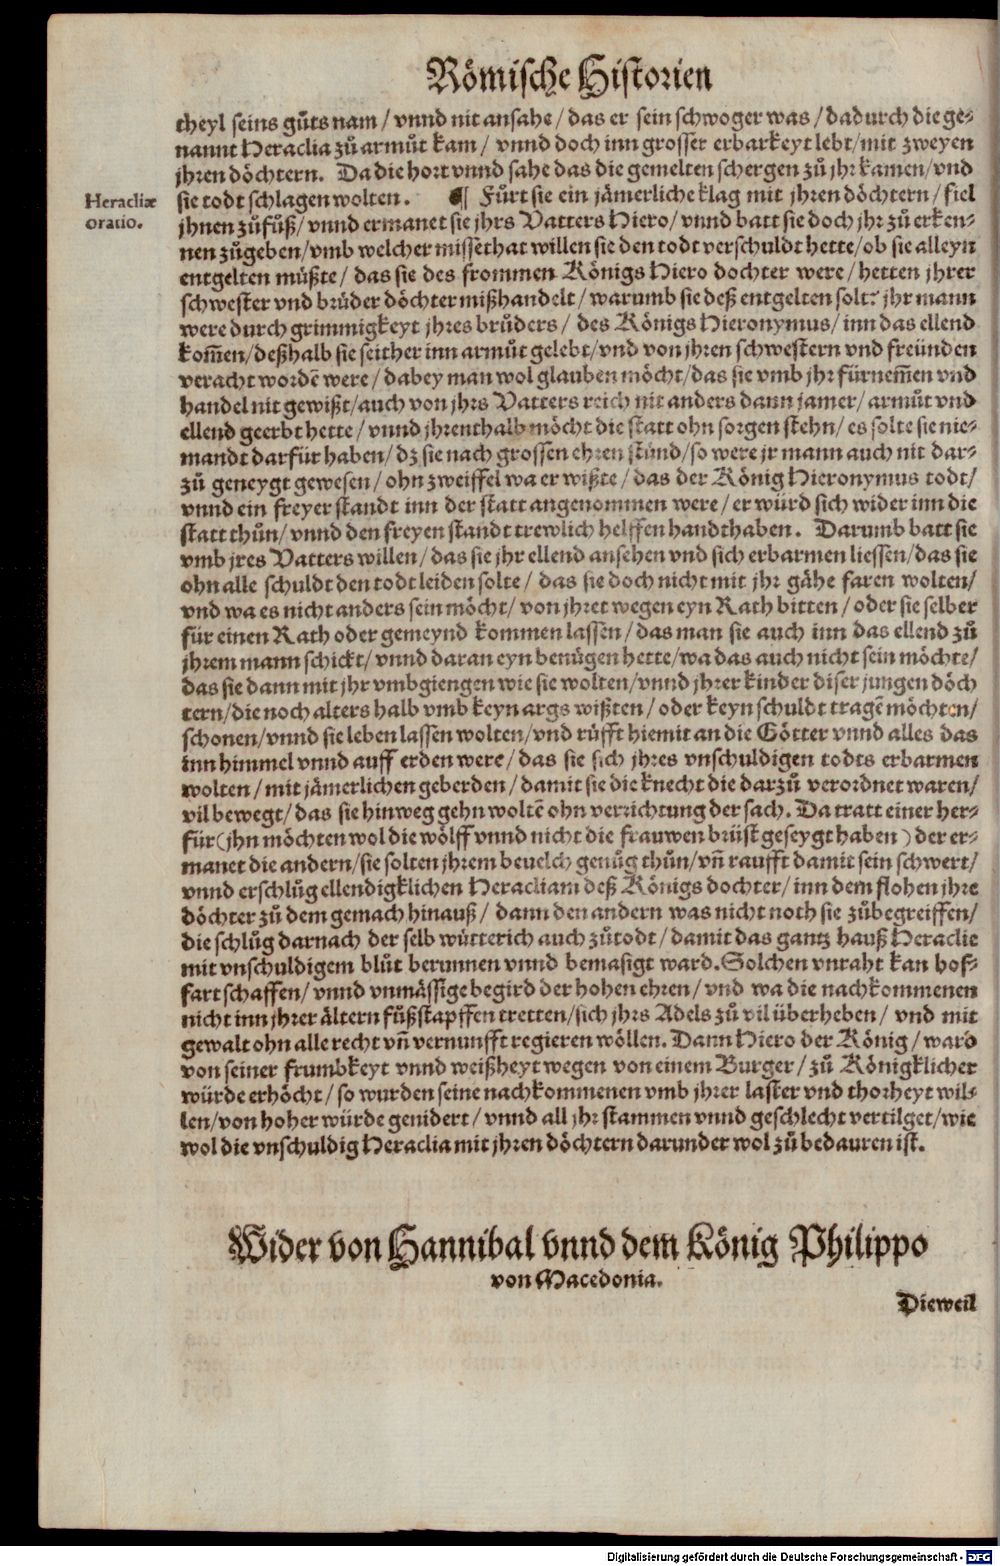 Römische Historien
theyl seins gůts nam / vnnd nit ansahe / das er sein schwoger was / dadurch die ge-
nannt Heraclia zů armůt kam / vnnd doch inn grosser erbarkeyt lebt / mit zweyen
jhren döchtern. Da die hort vnnd sahe das die gemelten schergen zů jhr kamen / vnd
sie todt schlagen wolten. ¶ Fůrt sie ein jämerliche klag mit jhren döchtern / fiel
Heracliæ
oratio.
jhnen zůfůß / vnnd ermanet sie jhrs Vatters Hiero / vnnd batt sie doch jhr zů erken-
nen zůgeben / vmb welcher missethat willen sie den todt verschuldt hette / ob sie alleyn
entgelten müßte / das sie des frommen Königs Hiero dochter were / hetten jhrer
schwester vnd brůder döchter mißhandelt / warumb sie deß entgelten solt? jhr mann
were durch grimmigkeyt jhres brůders / des Königs Hieronymus / inn das ellend
kom̃en / deßhalb sie seither inn armůt gelebt / vnd von jhren schwestern vnd freünden
veracht wordẽ were / dabey man wol glauben möcht / das sie vmb jhr fürnem̃en vnd
handel nit gewißt / auch von jhrs Vatters reich nit anders dann jamer / armůt vnd
ellend geerbt hette / vnnd jhrenthalb möcht die statt ohn sorgen stehn / es solte sie nie-
mandt darfür haben / dz sie nach grossen ehren stünd / so were jr mann auch nit dar-
zů geneygt gewesen / ohn zweiffel wa er wißte / das der König Hieronymus todt /
vnnd ein freyer standt inn der statt angenommen were / er würd sich wider inn die
statt thůn / vnnd den freyen standt trewlich helffen handthaben. Darumb batt sie
vmb jres Vatters willen / das sie jhr ellend ansehen vnd sich erbarmen liessen / das sie
ohn alle schuldt den todt leiden solte / das sie doch nicht mit jhr gähe faren wolten /
vnd wa es nicht anders sein möcht / von jhret wegen eyn Rath bitten / oder sie selber
für einen Rath oder gemeynd kommen lassen / das man sie auch inn das ellend zů
jhrem mann schickt / vnnd daran eyn benůgen hette / wa das auch nicht sein möchte /
das sie dann mit jhr vmbgiengen wie sie wolten / vnnd jhrer kinder diser jungen döch
tern / die noch alters halb vmb keyn args wißten / oder keyn schuldt tragẽ möchten /
schonen / vnnd sie leben lassen wolten / vnd růfft hiemit an die Götter vnnd alles das
inn himmel vnnd auff erden were / das sie sich jhres vnschuldigen todts erbarmen
wolten / mit jämerlichen geberden / damit sie die knecht die darzů verordnet waren /
vil bewegt / das sie hinweg gehn woltẽ ohn verrichtung der sach. Da tratt einer her-
für (jhn möchten wol die wölff vnnd nicht die frauwen brüst geseygt haben) der er-
manet die andern / sie solten jhrem beuelch genůg thůn / vñ raufft damit sein schwert /
vnnd erschlůg ellendigklichen Heracliam deß Königs dochter / inn dem flohen jhre
döchter zů dem gemach hinauß / dann den andern was nicht noth sie zůbegreiffen /
die schlůg darnach der selb wütterich auch zůtodt / damit das gantz hauß Heraclie
mit vnschuldigem blůt berunnen vnnd bemasigt ward. Solchen vnraht kan hof-
fart schaffen / vnnd vnmässige begird der hohen ehren / vnd wa die nachkommenen
nicht inn jhrer ältern fůßstapffen tretten / sich jhrs Adels zů vil überheben / vnd mit
gewalt ohn alle recht vñ vernunfft regieren wöllen. Dann Hiero der König / ward
von seiner frumbkeyt vnnd weißheyt wegen von einem Burger / zů Königklicher
würde erhöcht / so wurden seine nachkommenen vmb jhrer laster vnd thorheyt wil-
len / von hoher würde genidert / vnnd all jhr stammen vnnd geschlecht vertilget / wie
wol die vnschuldig Heraclia mit jhren döchtern darunder wol zů bedauren ist.
Wider von Hannibal vnnd dem König Philippo
von Macedonia.
Dieweil
Digitalisierung gefördert durch die Deutsche Forschungsgemeinschaft - DFG